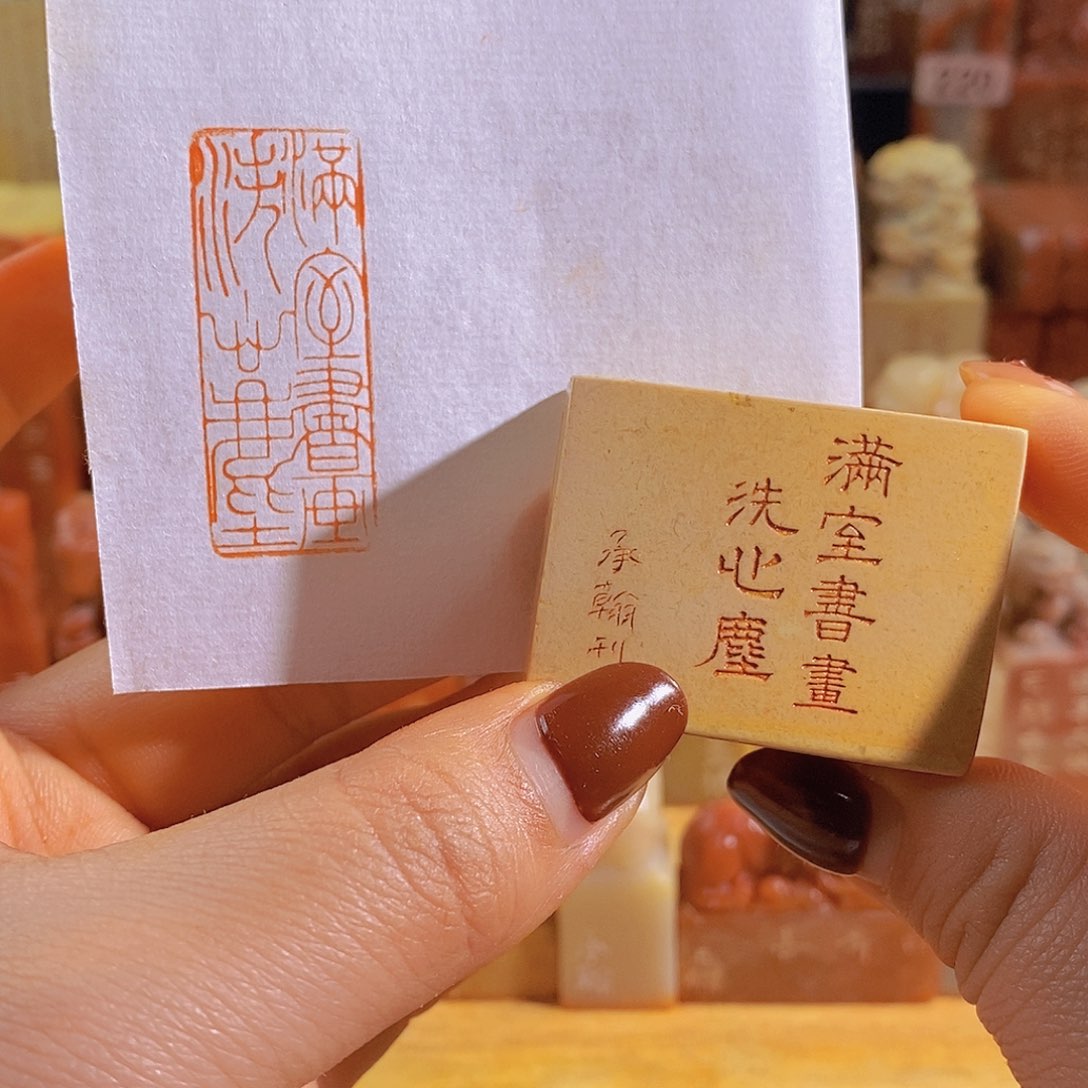 滿室書畫
洗心塵
滿室書畫
洗心塵
承翰刊
220